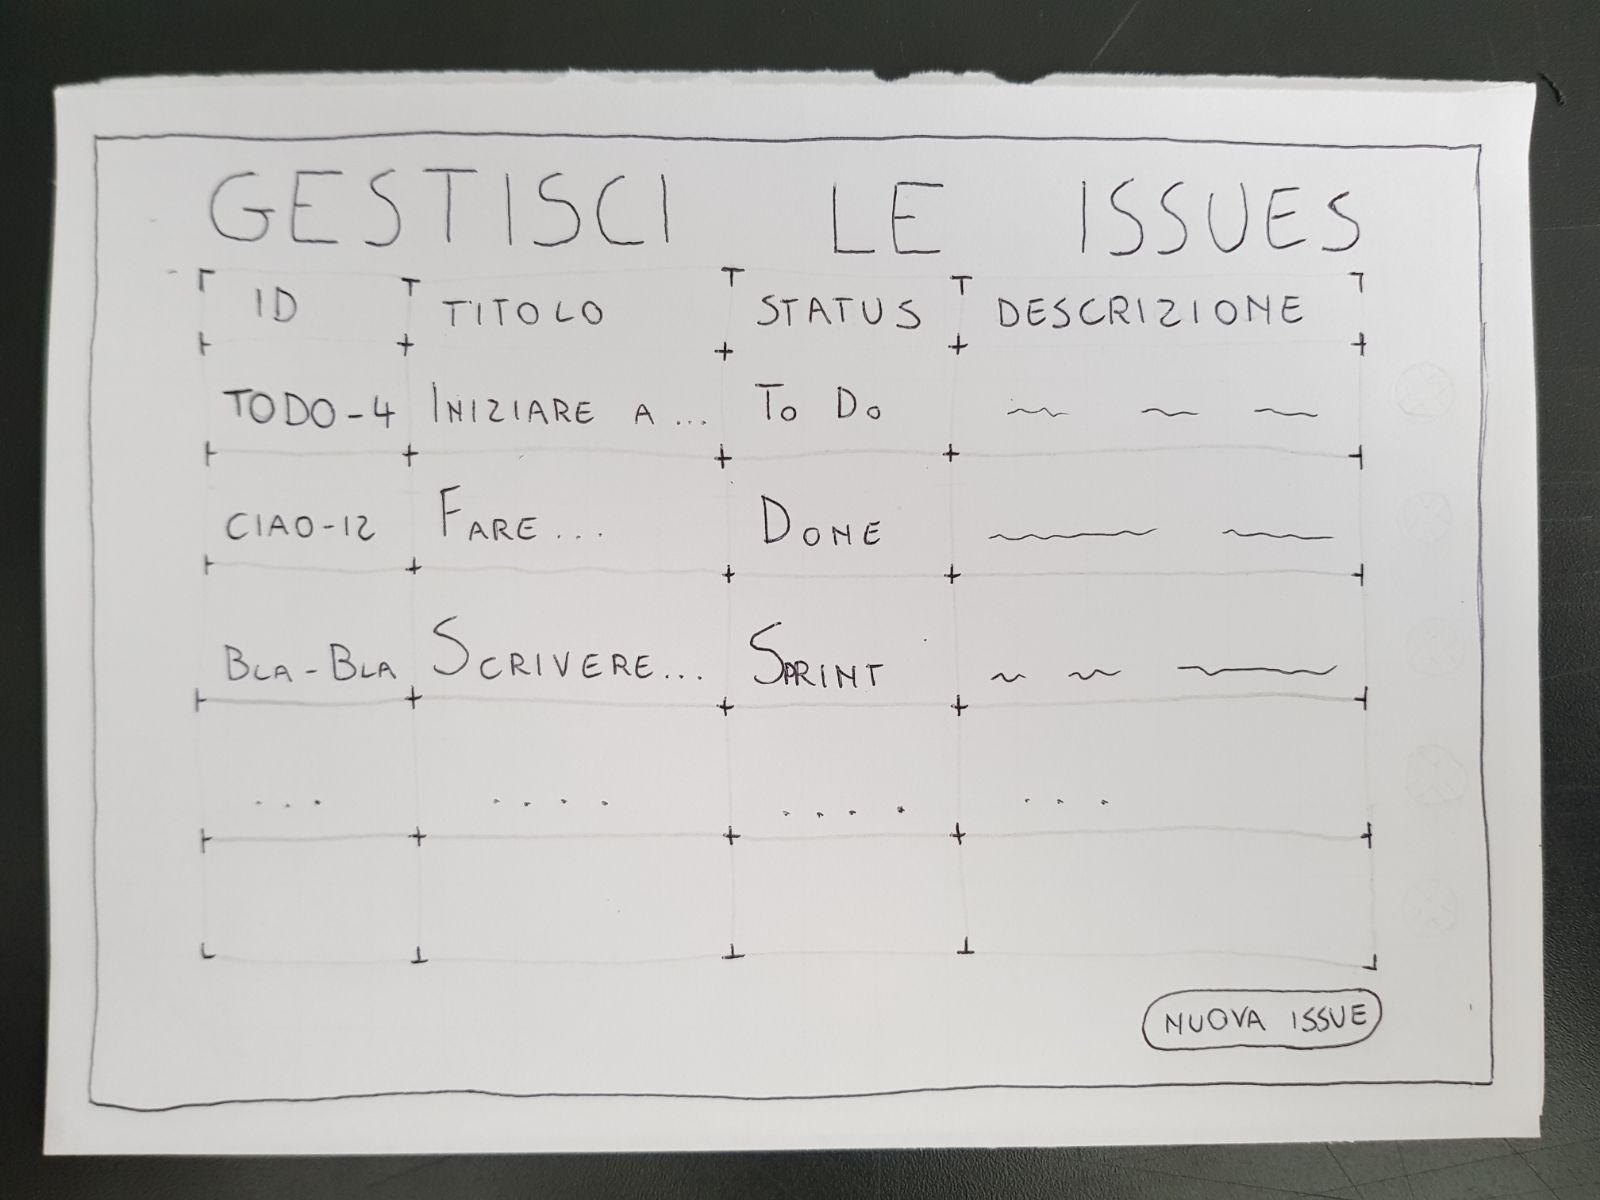 GESTISCI LE ISSUES
ID TITOLO STATUS DESCRIZIONE
TODO-4 INIZIARE A ... TO DO
CIAO-12 FARE ... DONE
BLA-BLA SCRIVERE... SPRINT
... .... .... ...
NUOVA ISSUE